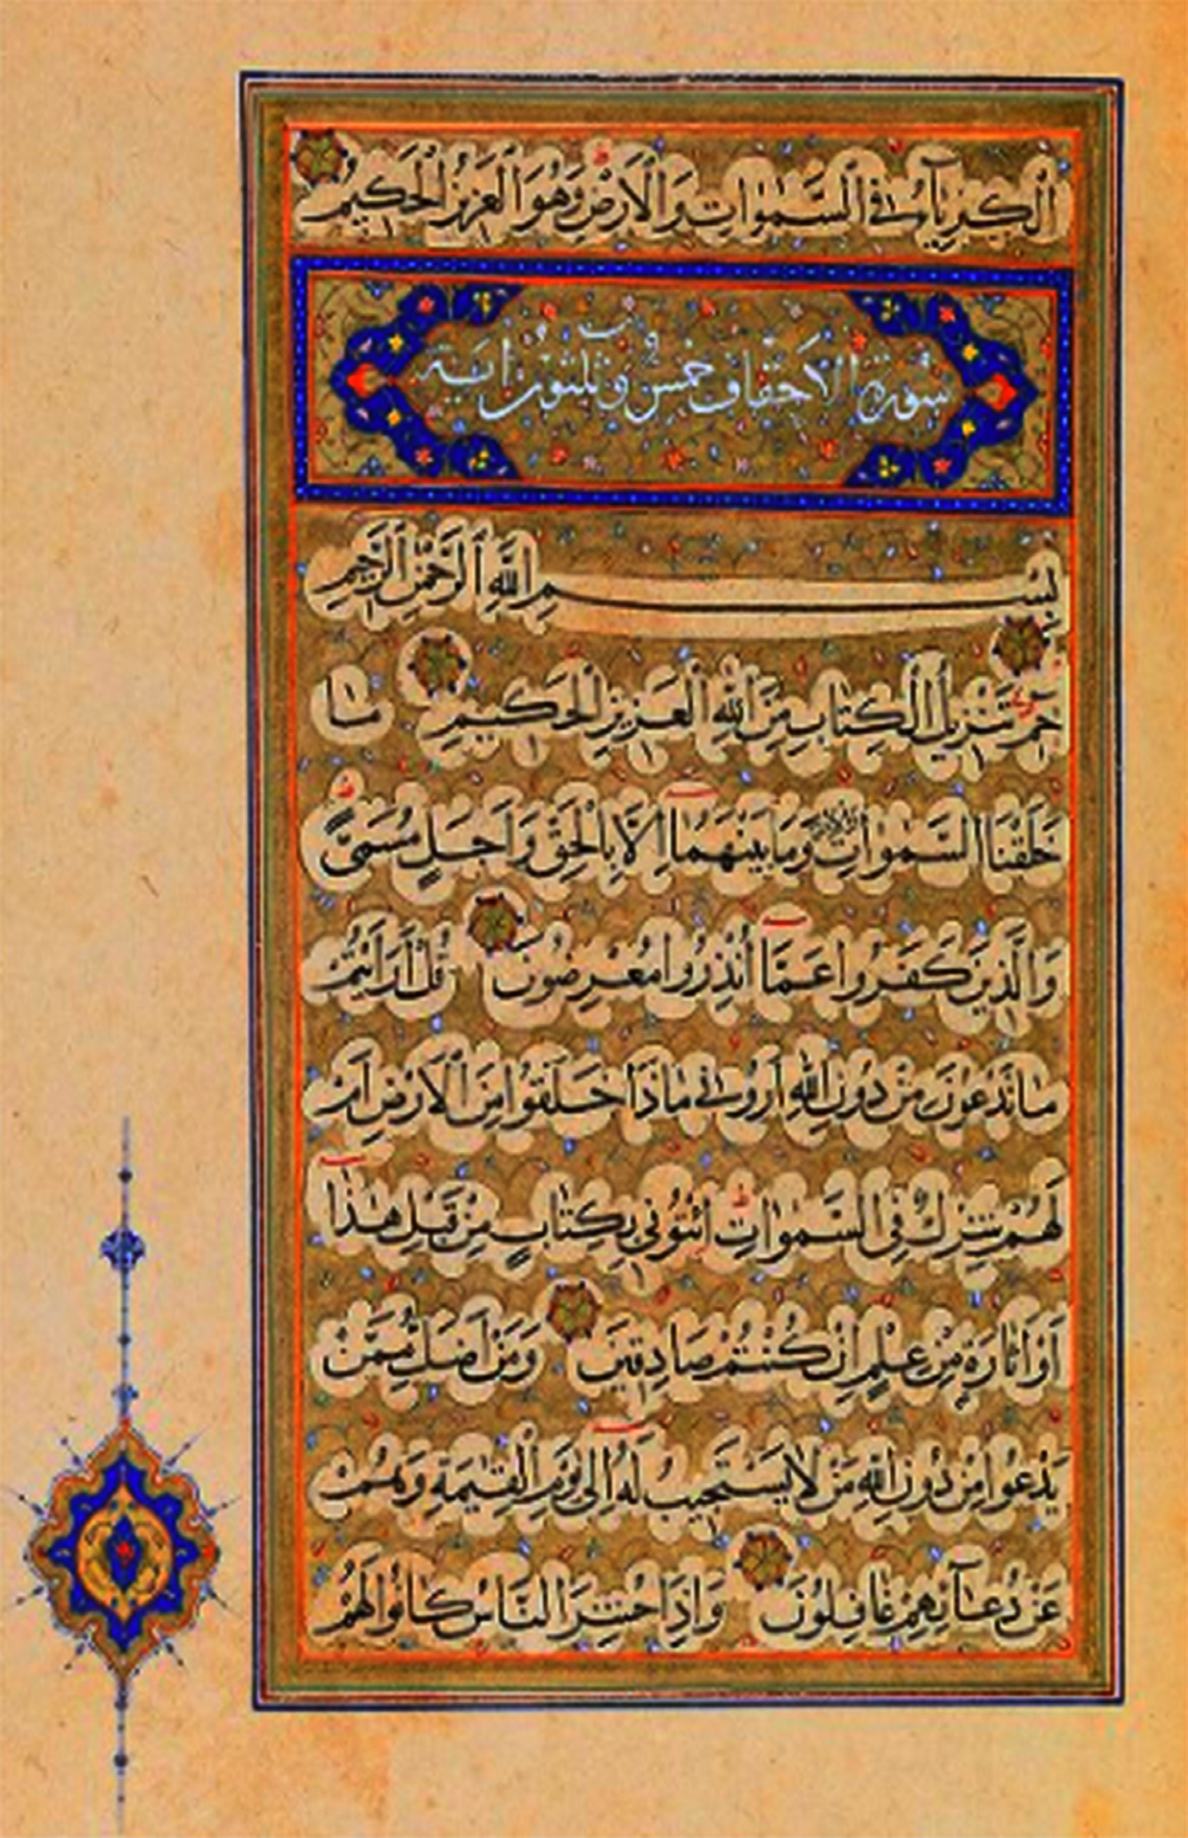 الْكِبْرِيَآءُ فِي السَّمٰوَاتِ وَالْاَرْضِ وَهُوَ الْعَزِيزُ الْحَكِيمُ
سورة الاحقاف خمس وثلثون اية
بِسْمِ اللهِ الرَّحْمٰنِ الرَّحِيمِ
حٰمٓ تَنْزِيلُ الْكِتَابِ مِنَ اللهِ الْعَزِيزِ الْحَكِيمِ مَا
خَلَقْنَا السَّمٰوَاتِ وَالْاَرْضَ وَمَا بَيْنَهُمَٓا اِلَّا بِالْحَقِّ وَاَجَلٍ مُسَمًّى
وَالَّذِينَ كَفَرُوا عَمَّٓا اُنْذِرُوا مُعْرِضُونَ قُلْ اَرَاَيْتُمْ
مَا تَدْعُونَ مِنْ دُونِ اللهِ اَرُونِي مَاذَا خَلَقُوا مِنَ الْاَرْضِ اَمْ
لَهُمْ شِرْكٌ فِي السَّمٰوَاتِ ائْتُونِي بِكِتَابٍ مِنْ قَبْلِ هٰذَٓا
اَوْ اَثَارَةٍ مِنْ عِلْمٍ اِنْ كُنْتُمْ صَادِقِينَ وَمَنْ اَضَلُّ مِمَّنْ
يَدْعُوا مِنْ دُونِ اللهِ مَنْ لَا يَسْتَجِيبُ لَهُٓ اِلٰى يَوْمِ الْقِيٰمَةِ وَهُمْ
عَنْ دُعَآئِهِمْ غَافِلُونَ وَاِذَا حُشِرَ النَّاسُ كَانُوا لَهُمْ